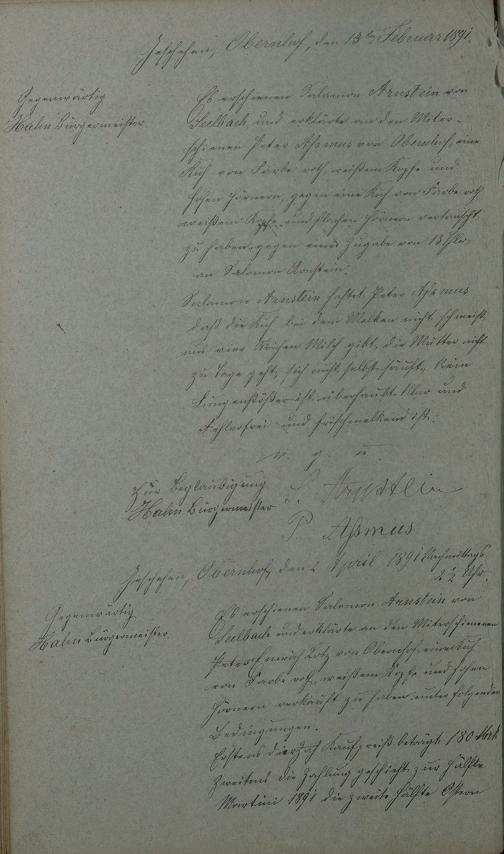 Geschehen, Obernhof, den 13ten Februar 1891.
Gegenwärtig
Hahn Bürgermeister
Es erschienen Salamon Arnstein von
Seelbach und erklärte an den Miter-
schienen Peter Aßmus von Obernhof, eine
Kuh von Farbe roth, weißem Kopfe und
hohen Hörnern, gegen eine Kuh von Farbe roth
weißem Kopfe und flachen Hörnern vertauscht
zu haben, gegen eines Zugabe von 13 Thlr
an Salamon Arnstein.
Salamon Arnstein haftet Peter Aßmus
daß die Kuh bei dem Melken nicht schmeißt,
und eine Milch gibt, die Mutter nicht
zu Tage geht, sich nicht selbst säuft, kein
Lungenstößer ist, überhaupt klar und
Fehlerfrei und frischmelkend ist.
v. g. u.
Zur Beglaubigung
Hahn Bürgermeister
S. Arnstein
P. Aßmus
Geschehen, Obernhof, den 2 April 1891 Nachmittags
2 ½ Uhr.
Gegenwärtig
Hahn Bürgermeister
Es erschienen Salamon Arnstein von
Seelbach und erklärte an den Miterschienenen
Peter Emrich Lotz von Obernhof, eine Kuh
von Farbe roth, weißem Kopfe und hohen
Hörnern verkauft zu haben, unter folgenden
Bedingungen.
Erstens der Kaufpreiß beträgt 180 Mrk
Zweitens die Zahlung geschieht zur Hälfte
Martini 1891 die zweite Hälfte Ostern